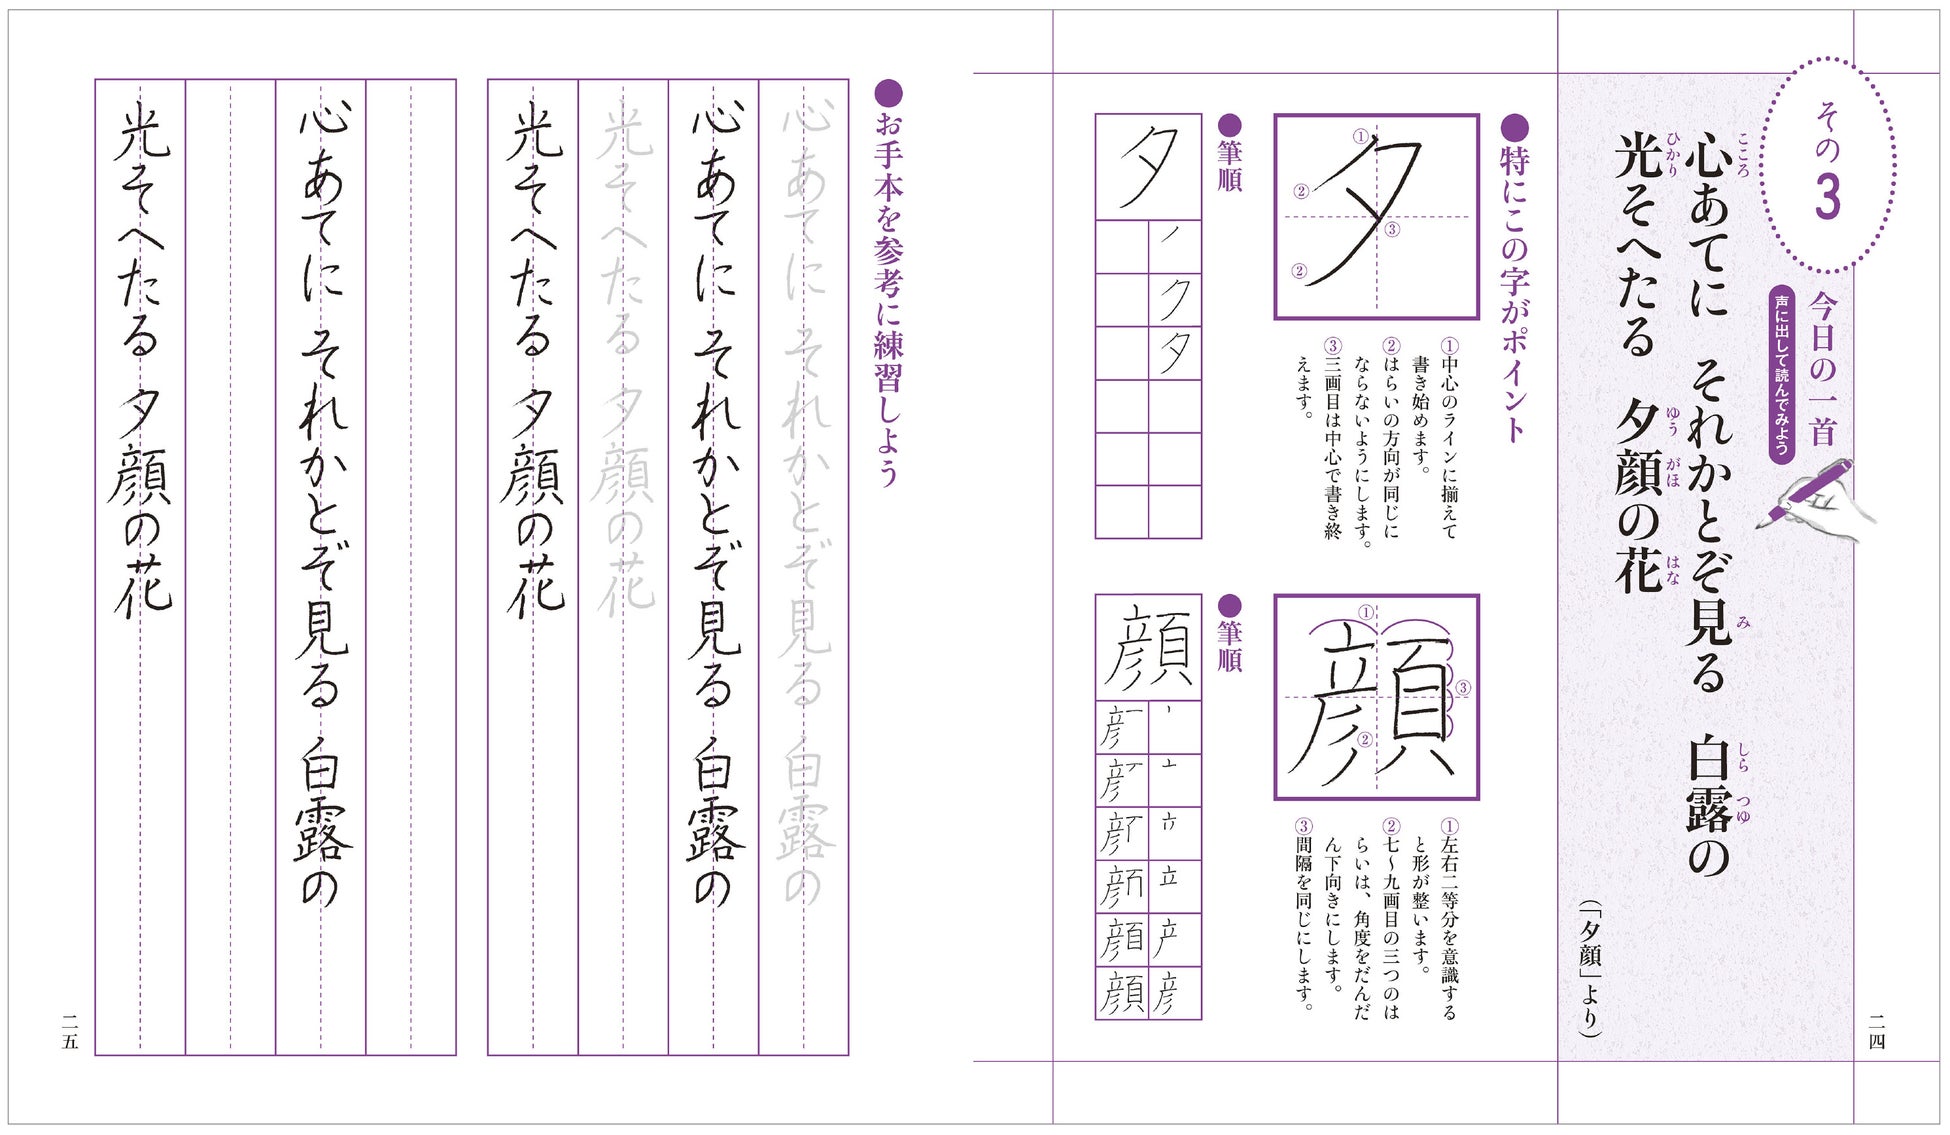 二四
その3
今日の一首
声に出して読んでみよう
心あてに それかとぞ見る 白露の
こころ
み
しら つゆ
光そへたる 夕顔の花
ひかり
ゆう がほ
はな
(「夕顔」より)
●特にこの字がポイント
夕
①
②
③
②
①中心のラインに揃えて
書き始めます。
②はらいの方向が同じに
ならないようにします。
③三画目は中心で書き終
えます。
●筆順
夕
ノ
ク
夕
顔
①
②
③
①左右二等分を意識する
と形が整います。
②七〜九画目の三つのは
らいは、角度をだんだ
ん下向きにします。
③間隔を同じにします。
●筆順
顔
●お手本を参考に練習しよう
心あてに それかとぞ見る 白露の
心あてに それかとぞ見る 白露の
光そへたる 夕顔の花
光そへたる 夕顔の花
心あてに それかとぞ見る 白露の
光そへたる 夕顔の花
二五